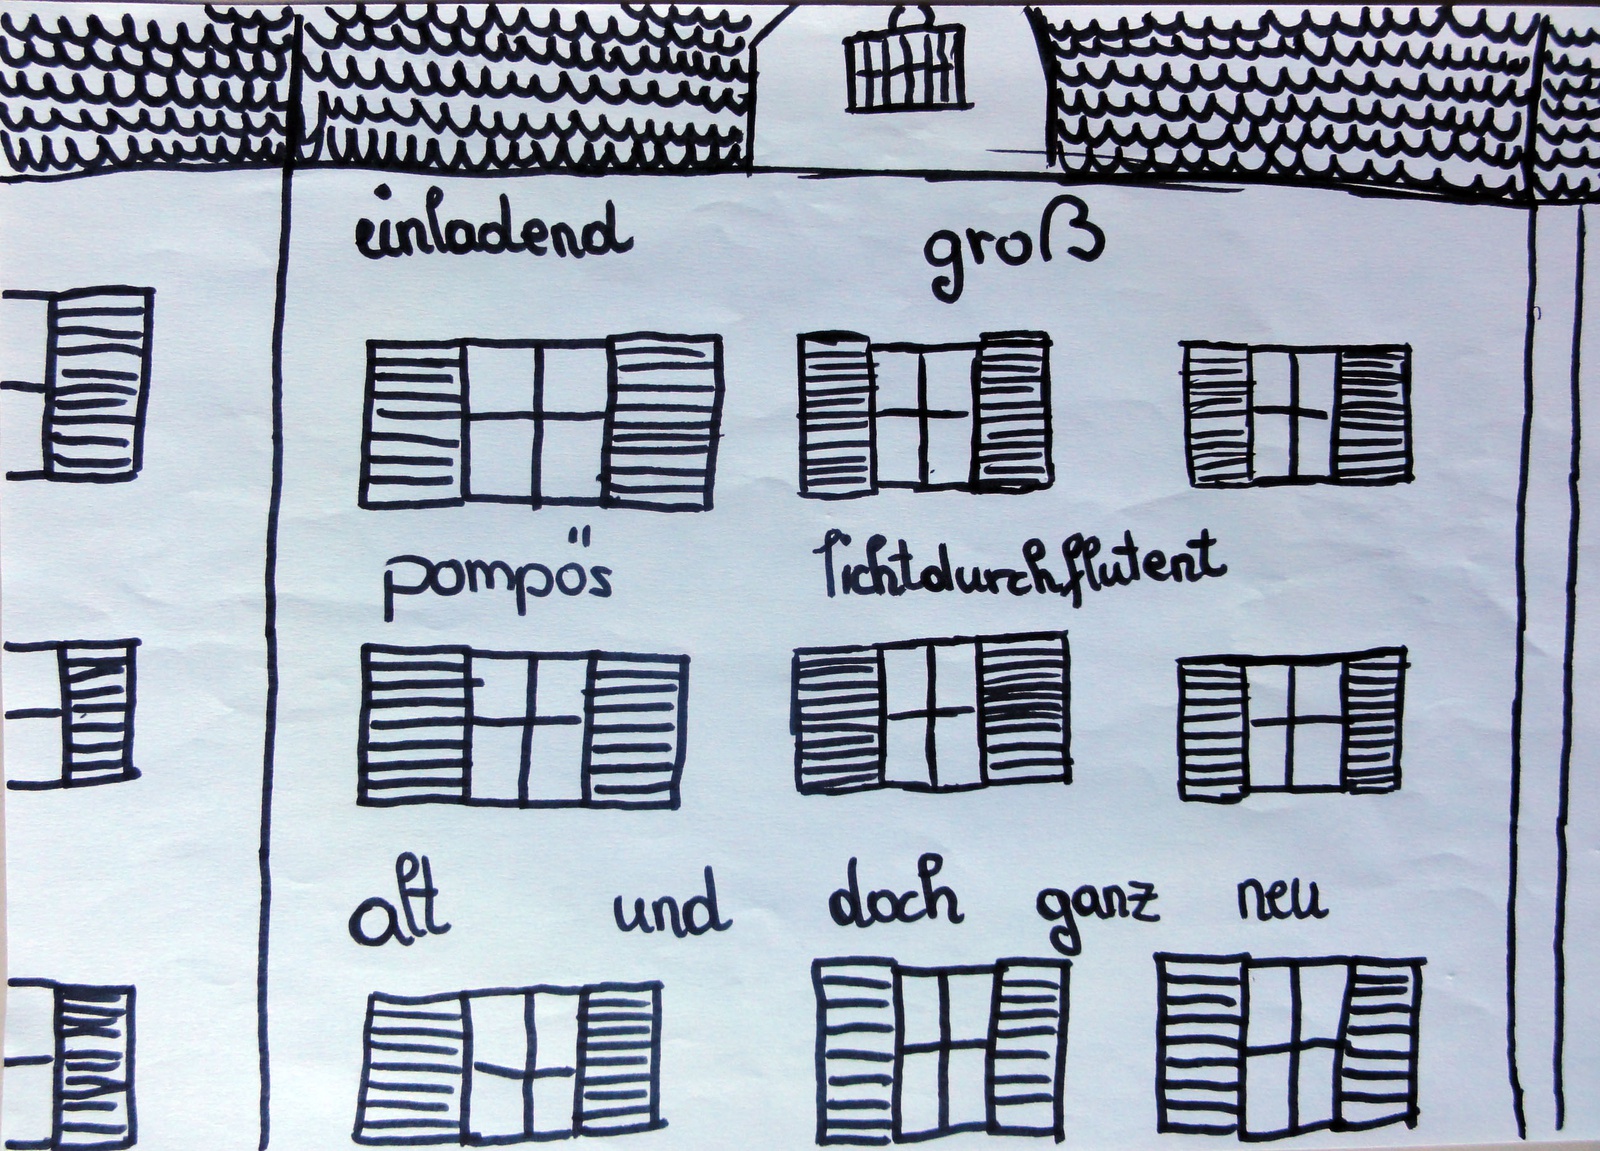 einladend groß
pompös lichtdurchflutent
alt und doch ganz neu